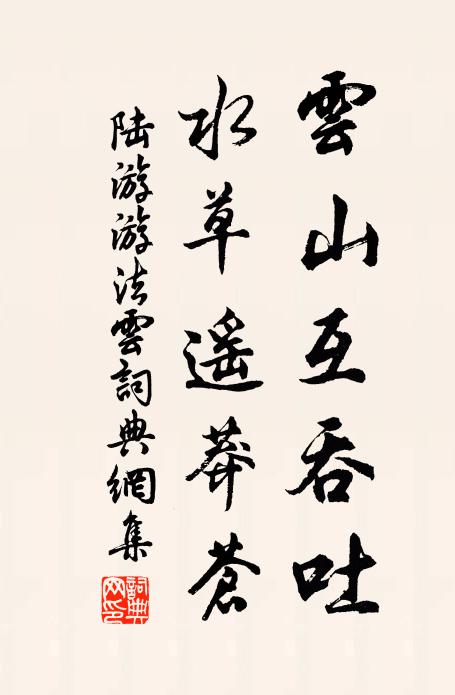 雲山互吞吐
水草遥莽蒼
陆游游法雲詞典網集
詞典网印